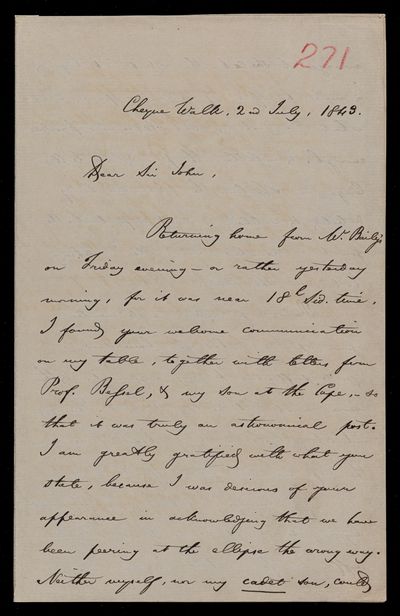 271
Cheyne Walk, 2nd July, 1843.
Dear Sir John,
Returning home from Mr. Baily's
on Friday evening – or rather yesterday
morning, for it was near 18h Sid. time,
I found your welcome communication
on my table, together with letters from
Prof. Bessel, & my son at the Cape, – so
that it was truly an astronomical post.
I am greatly gratified with what you
state, because I was desirous of your
appearance in acknowledging that we have
been peering at the ellipse the wrong way.
Neither myself, nor my cadet son, could